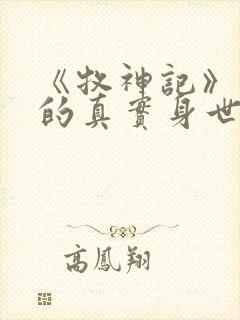 《牧神記》
的真實身世
高鳳翔